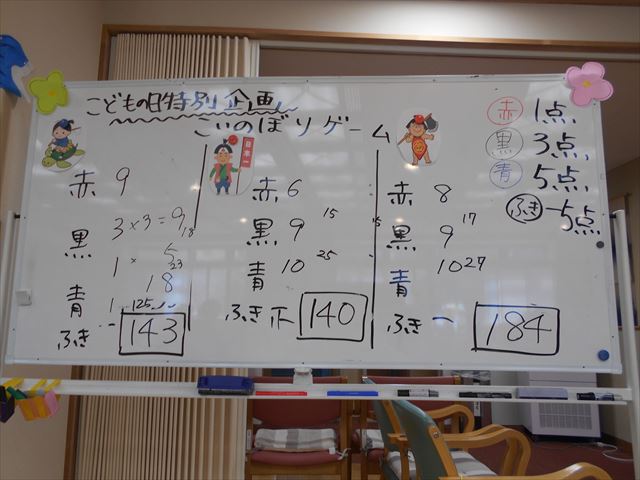 こどもの日特別企画
こいのぼりゲーム
赤 1点
黒 3点
青 5点
ふき -5点
赤 9
黒 3×3=9 18
1 × 5 23
18
青 1 125
ふき - 143
日本一
赤 6
黒 9 15
青 10 25
ふき 正 140
赤 8
黒 9 17
青 10 27
ふき 一 184